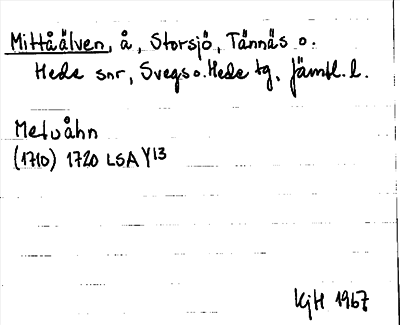 Mittåälven, å, Storsjö, Tännäs o.
Hede snr, Svegs o. Hede tg, Jämtl. l.
Metuåhn
(1710) 1720 LSA Y13
KjH 1967